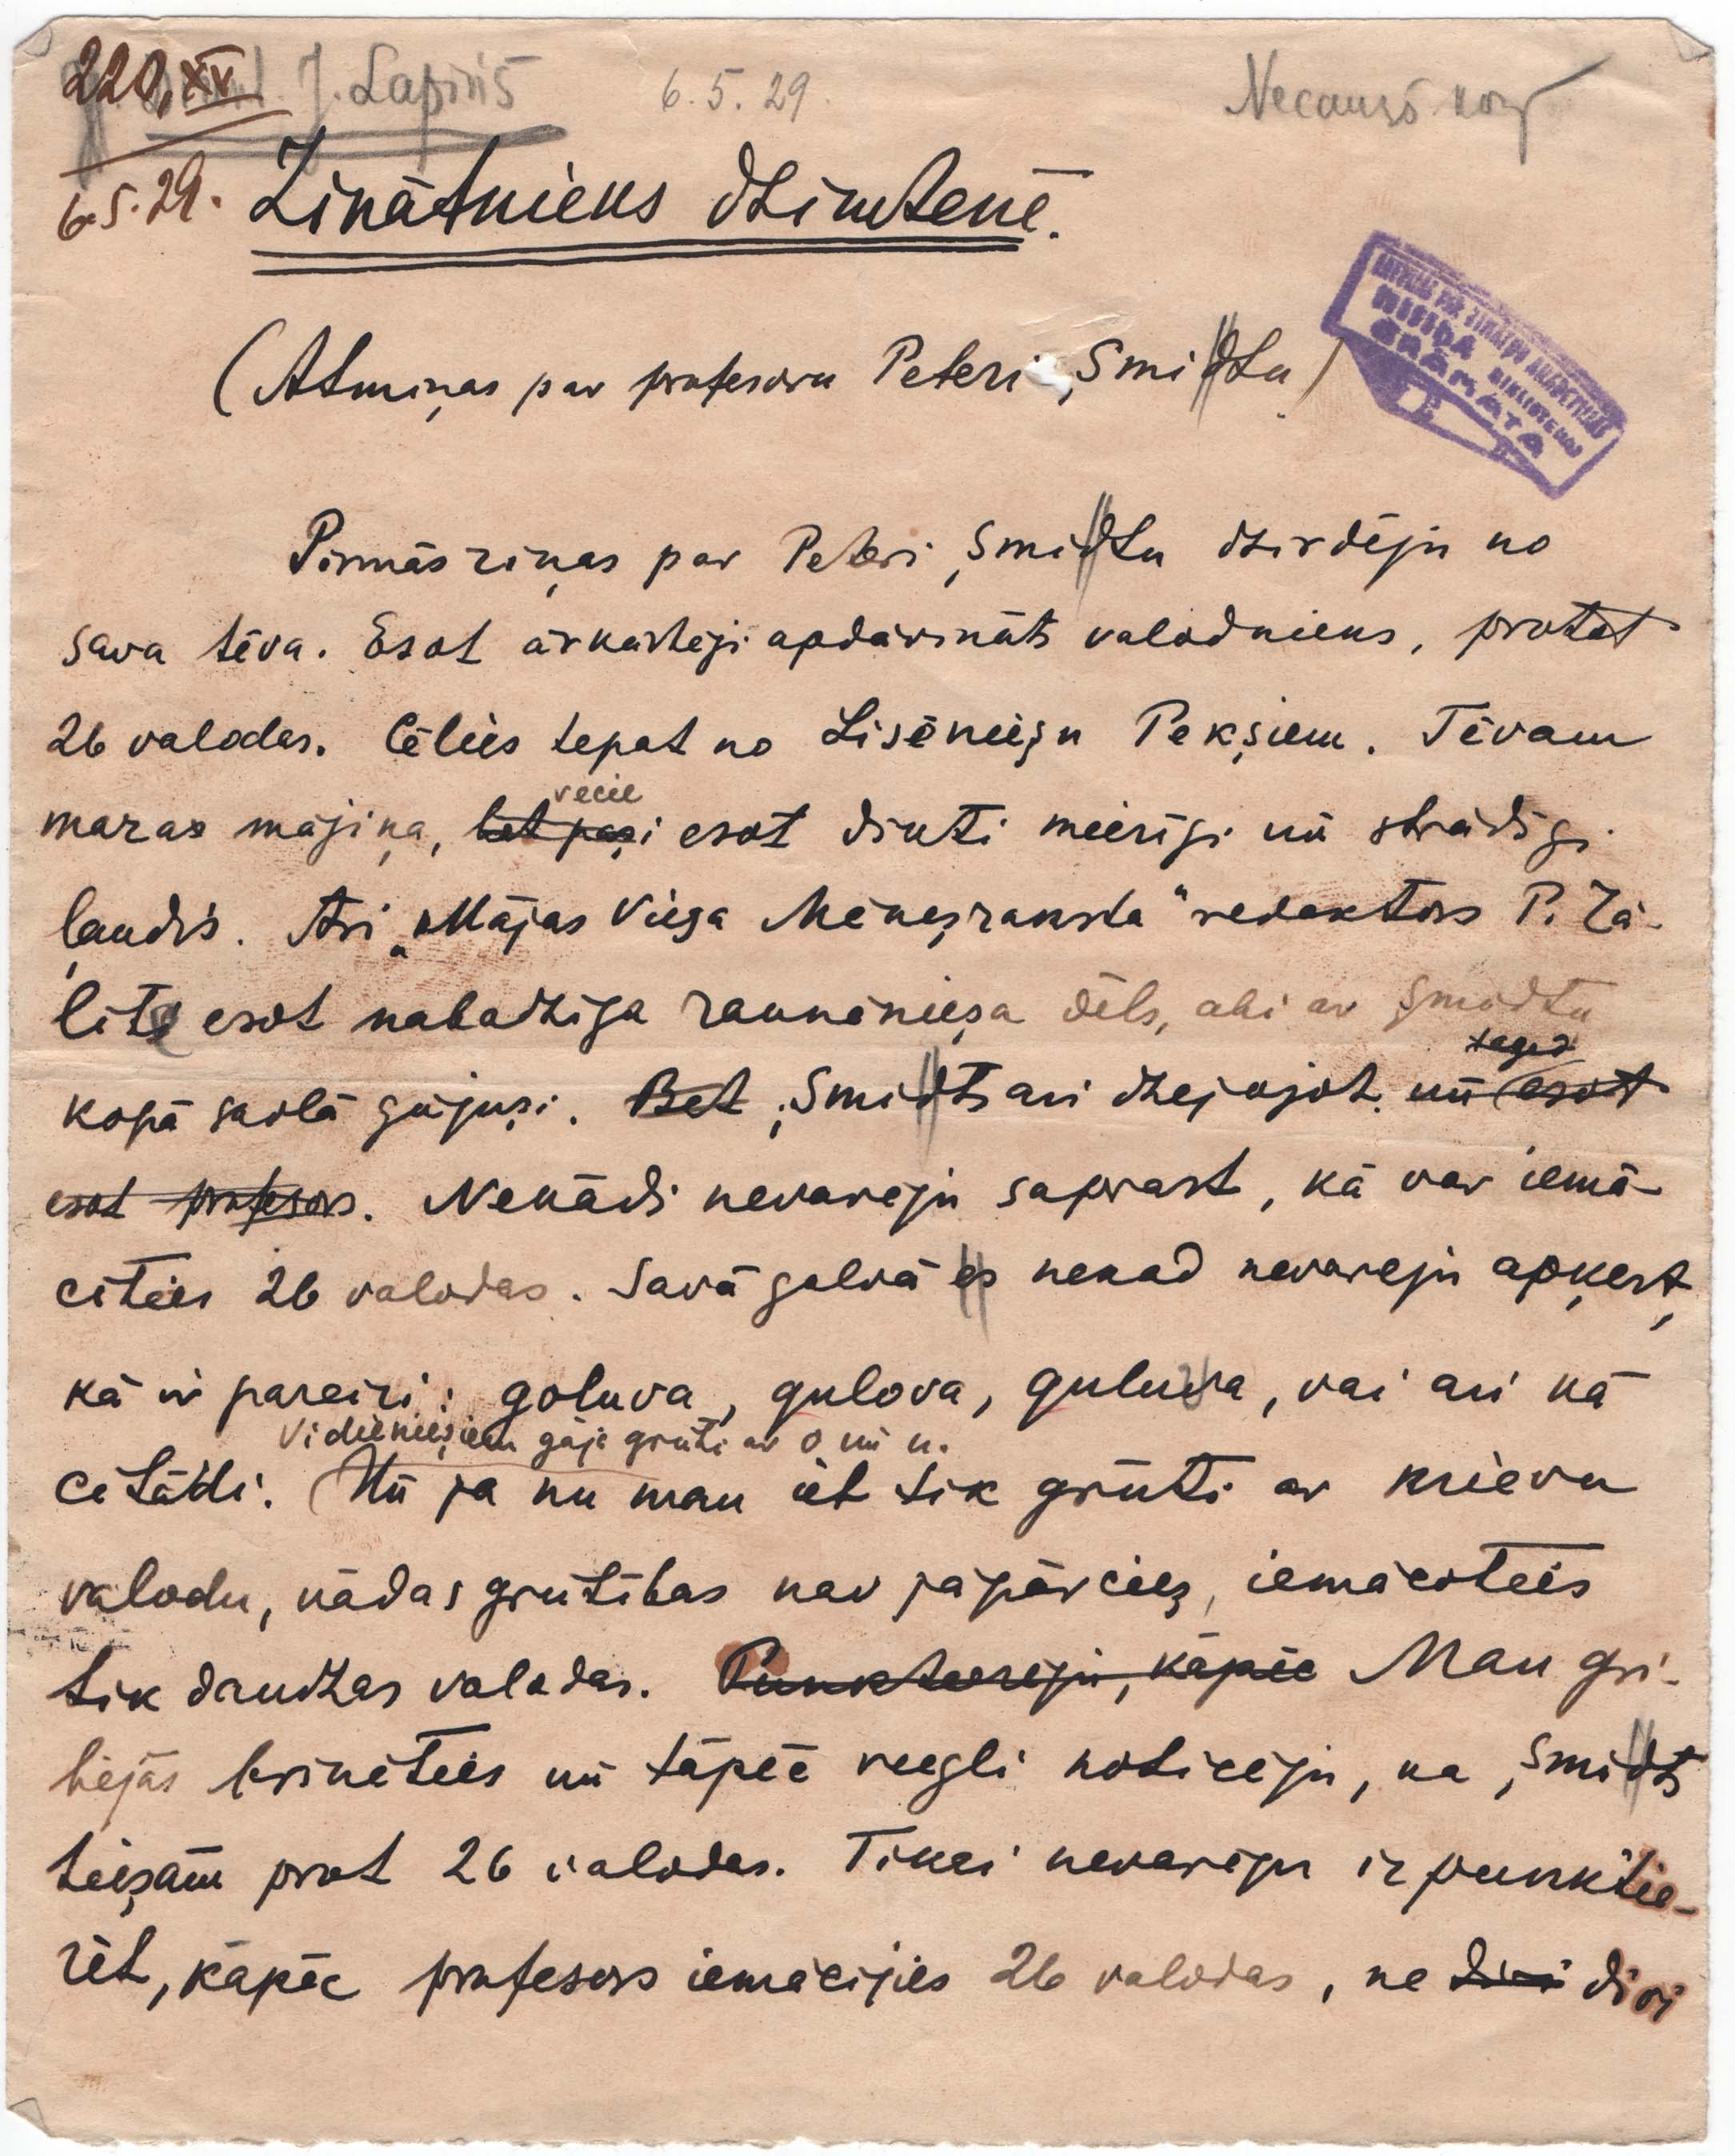 220, XV J. Lapiņš 6.5.29.
6.5.29. Zinātnieks dzimtenē.
(Atmiņas par profesoru Pēteri Šmidtu)
Pirmās ziņas par Pēteri Šmidtu dzirdēju no
sava tēva. Esot ārkārtēji apdāvināts valodnieks, protot
26 valodas. Cēlies tepat no Lisēniešu Pekšiem. Tēvam
maza mājiņa, vecie
bet paši esot dikti mierīgi un strādīgi
ļaudis. Arī „Mājas Viesa Mēnešraksta" redaktors P. Zā-
līte esot nabadzīga raunēnieša dēls, abi ar Šmidtu
kopā skolā gājuši. Bet Šmidts ari dzejojot un tagad esot
esot profesors. Nekādi nevarēju saprast, kā var iemā-
cīties 26 valodas. Savā galvā es nekad nevarēju apķert,
kā ir pareizi: goluva, gulova, guluva, vai ari kā
Vidzemniešiem gāja grūti ar o un u.
citādi. Un ja nu man iet tik grūti ar krievu
valodu, kādas grūtības nav jāpārcieš, iemācoties
tik daudzas valodas. Man gri-
bējās brīnēties un tāpēc viegli noticēju, ka Šmidts
tiešām prot 26 valodas. Tikai nevarēju izpunktie-
rēt, kāpēc profesors iemācījies 26 valodas, ne divi divi